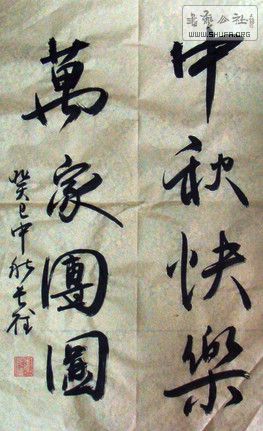 中秋快樂
萬家團圓
癸巳中秋
WWW.SHUFA.ORG